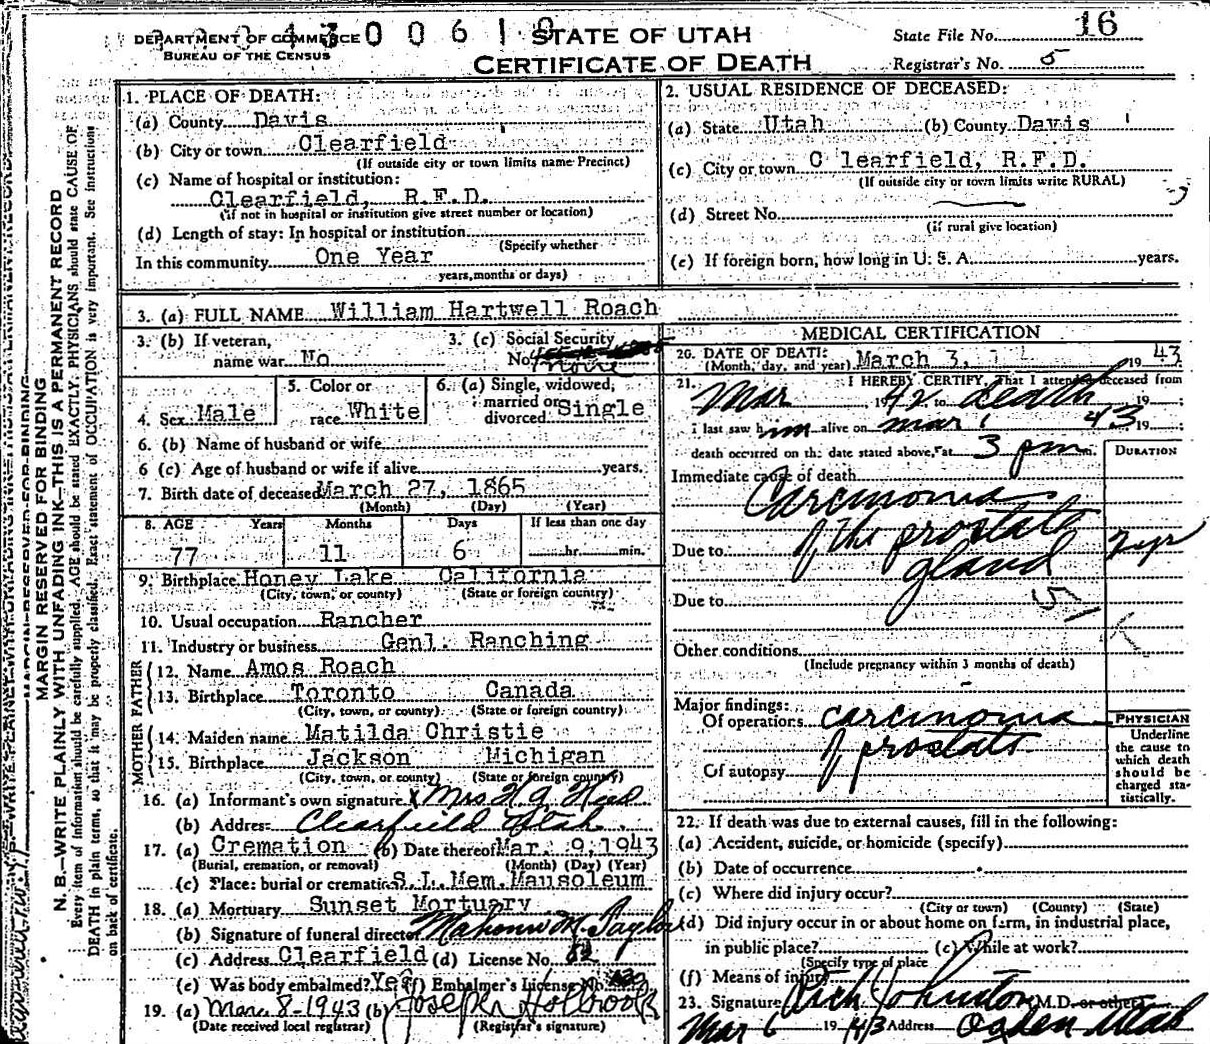 DEPARTMENT OF COMMERCE
BUREAU OF THE CENSUS
43 0 0 6 1 0
STATE OF UTAH
CERTIFICATE OF DEATH
State File No. 16
Registrar's No. 5
MARGIN RESERVED FOR BINDING
N. B.—WRITE PLAINLY WITH UNFADING INK—THIS IS A PERMANENT RECORD
Every item of information should be carefully supplied. AGE should be stated EXACTLY. PHYSICIANS should state CAUSE OF
DEATH in plain terms, so that it may be properly classified. Exact statement of OCCUPATION is very important. See instructions
on back of certificate.
1. PLACE OF DEATH:
(a) County Davis
(b) City or town Clearfield
(If outside city or town limits name Precinct)
(c) Name of hospital or institution:
Clearfield, R.F.D.
(if not in hospital or institution give street number or location)
(d) Length of stay: In hospital or institution
(Specify whether
In this community One Year
years, months or days)
2. USUAL RESIDENCE OF DECEASED:
(a) State Utah (b) County Davis
(c) City or town C learfield, R.F.D.
(If outside city or town limits write RURAL)
(d) Street No.
(if rural give location)
(e) If foreign born, how long in U. S. A. years.
3. (a) FULL NAME William Hartwell Roach
3. (b) If veteran,
name war No
3. (c) Social Security
No. none
4. Sex Male
5. Color or
race White
6. (a) Single, widowed,
married or
divorced Single
6. (b) Name of husband or wife
6 (c) Age of husband or wife if alive years.
7. Birth date of deceased March 27, 1865
(Month) (Day) (Year)
8. AGE Years Months Days If less than one day
77 11 6 hr. min.
9. Birthplace Honey Lake California
(City, town, or county) (State or foreign country)
10. Usual occupation Rancher
11. Industry or business Genl. Ranching
FATHER
12. Name Amos Roach
13. Birthplace Toronto Canada
(City, town, or county) (State or foreign country)
MOTHER
14. Maiden name Matilda Christie
15. Birthplace Jackson Michigan
(City, town, or county) (State or foreign country)
16. (a) Informant's own signature x Mrs H. G.
(b) Address Clearfield Utah.
17. (a) Cremation (b) Date thereof Mar. 9, 1943
(Burial, cremation, or removal) (Month) (Day) (Year)
(c) Place: burial or cremation S.L. Mem. Mausoleum
18. (a) Mortuary Sunset Mortuary
(b) Signature of funeral director M. Taylor
(c) Address Clearfield (d) License No. 82
(e) Was body embalmed? Yes (f) Embalmer's License No.
19. (a) Mar 8-1943 (b) Joseph Holbrook
(Date received local registrar) (Registrar's signature)
MEDICAL CERTIFICATION
20. DATE OF DEATH: March 3, 19 43
(Month, day, and year)
21. I HEREBY CERTIFY, That I attended deceased from
Mar , 19 42 to death 19 ;
I last saw him alive on mar 1 43 19 ;
death occurred on the date stated above, at 3 pm m.
DURATION
Immediate cause of death
Carcinoma
of the prostate
Due to gland 2 yr
Due to
Other conditions
(Include pregnancy within 3 months of death)
Major findings:
Of operations carcinoma
of prostate
Of autopsy
PHYSICIAN
Underline
the cause to
which death
should be
charged sta-
tistically.
22. If death was due to external causes, fill in the following:
(a) Accident, suicide, or homicide (specify)
(b) Date of occurrence
(c) Where did injury occur?
(City or town) (County) (State)
(d) Did injury occur in or about home on farm, in industrial place,
in public place? (e) While at work?
(Specify type of place
(f) Means of injury
23. Signature Rich Johnston (M.D. or other)
Mar 6 19 43 Address Ogden Utah